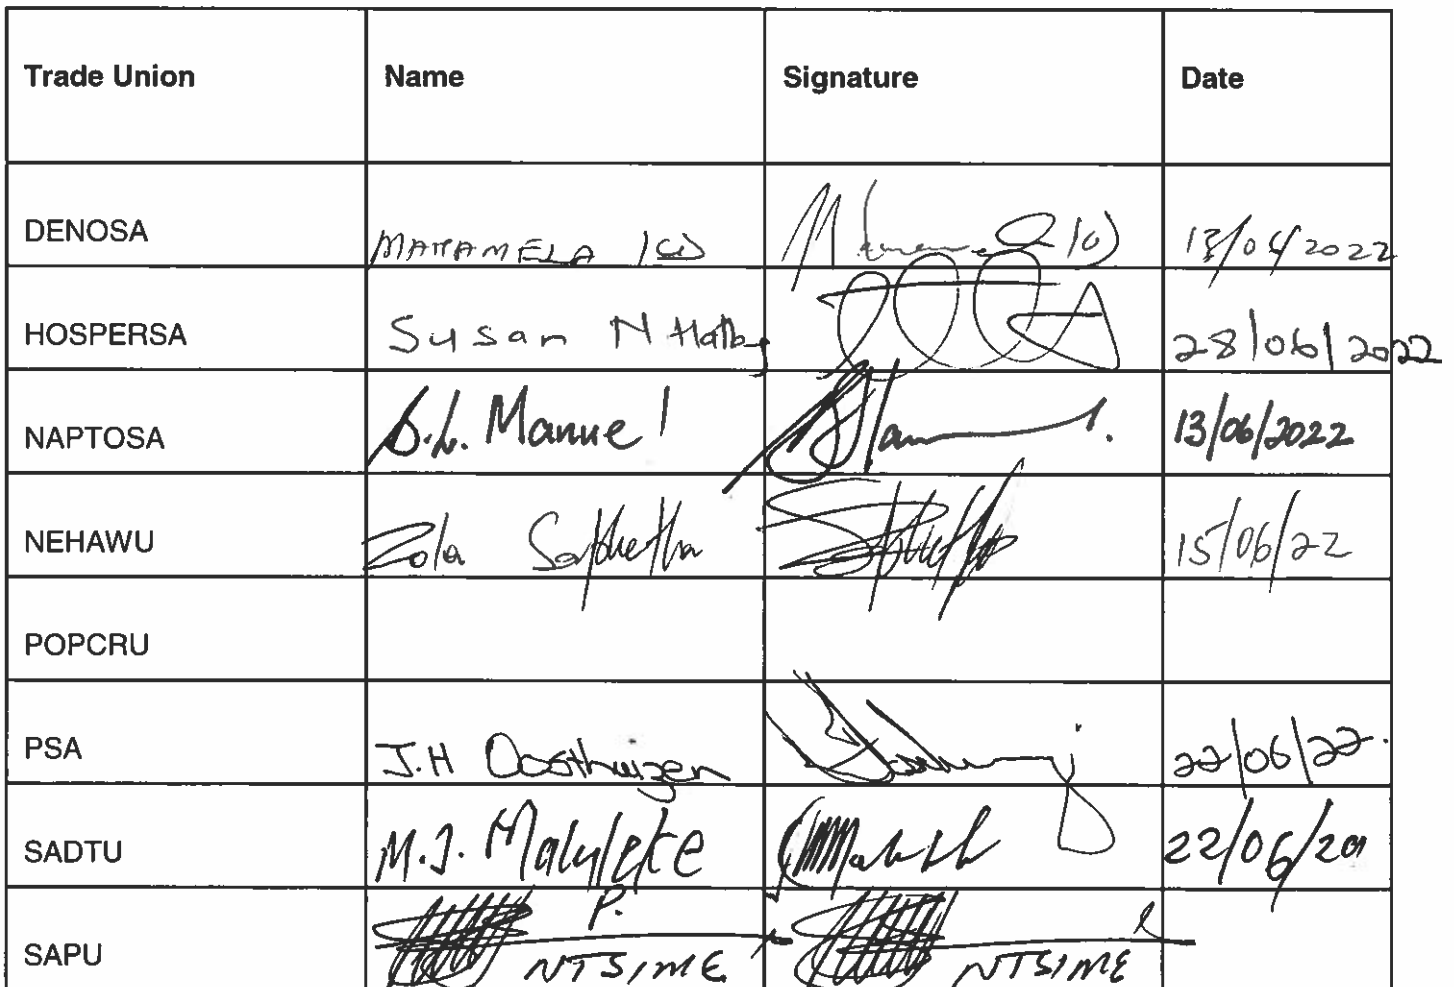 Trade Union Name Signature Date
DENOSA 2022
HOSPERSA Susan 28/06/2022
NAPTOSA Manuel 13/06/2022
NEHAWU Zola 15/06/22
POPCRU
PSA J.H Oosthuizen 22/06/22
SADTU M.J. Maluleke 22/06/20
SAPU P. NTSIME NTSIME